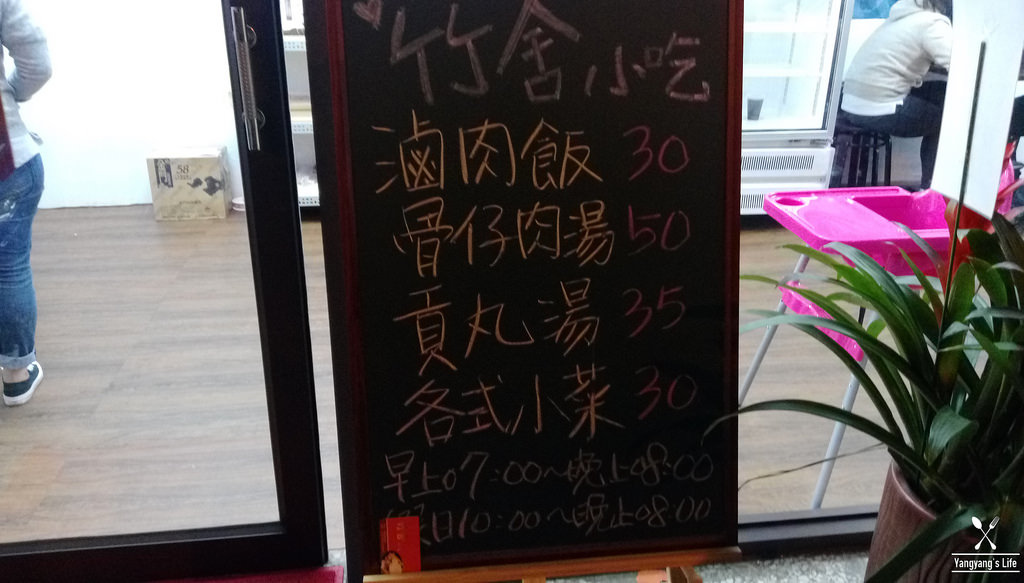 竹舍小吃
滷肉飯 30
骨仔肉湯 50
貢丸湯 35
各式小菜 30
早上07:00~晚上08:00
假日10:00~晚上08:00
58
Yangyang's Life